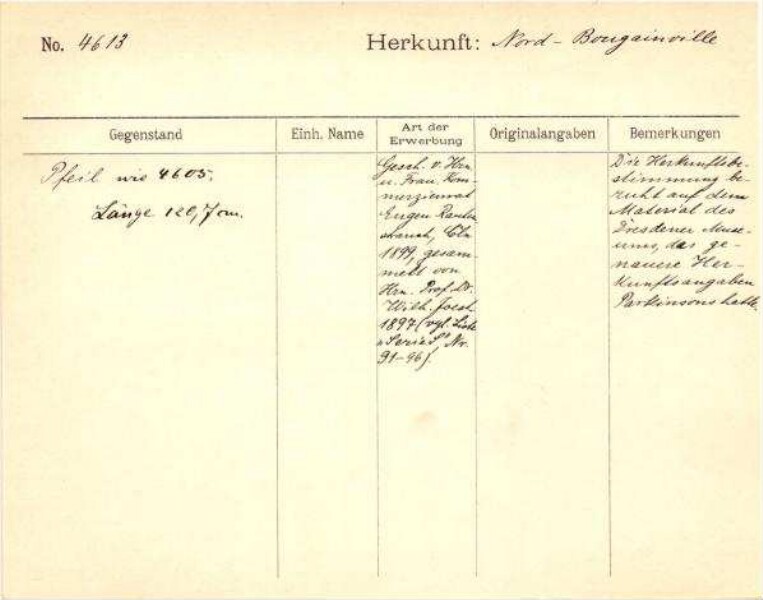 No. 4613
Herkunft: Nord-Bougainville
Gegenstand
Einh. Name
Art der
Erwerbung
Originalangaben
Bemerkungen
Pfeil wie 4605.
Länge 120,7 cm.
Gesch. v. Hrn.
u. Frau Kom-
merzienrat
Eugen Rauten-
strauch, Cöln
1899, gesam-
melt von
Hrn. Prof. Dr.
Wilh. Joest
1897 (vgl. Liste
"Serie I" Nr.
91-96).
Die Herkunftsbe-
stimmung be-
ruht auf dem
Material des
Dresdener Muse-
ums, das ge-
nauere Her-
kunftsangaben
Parkinsons hatte.